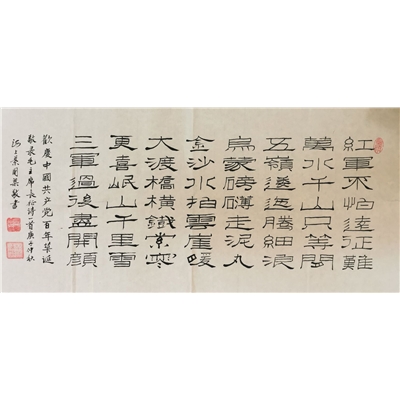 紅軍不怕遠征難
萬水千山只等閒
五嶺逶迤騰細浪
烏蒙磅礴走泥丸
金沙水拍雲崖暖
大渡橋橫鐵索寒
更喜岷山千里雪
三軍過後盡開顏
歡慶中國共产党百年華诞
敬录毛主席長征詩一首庚子仲秋